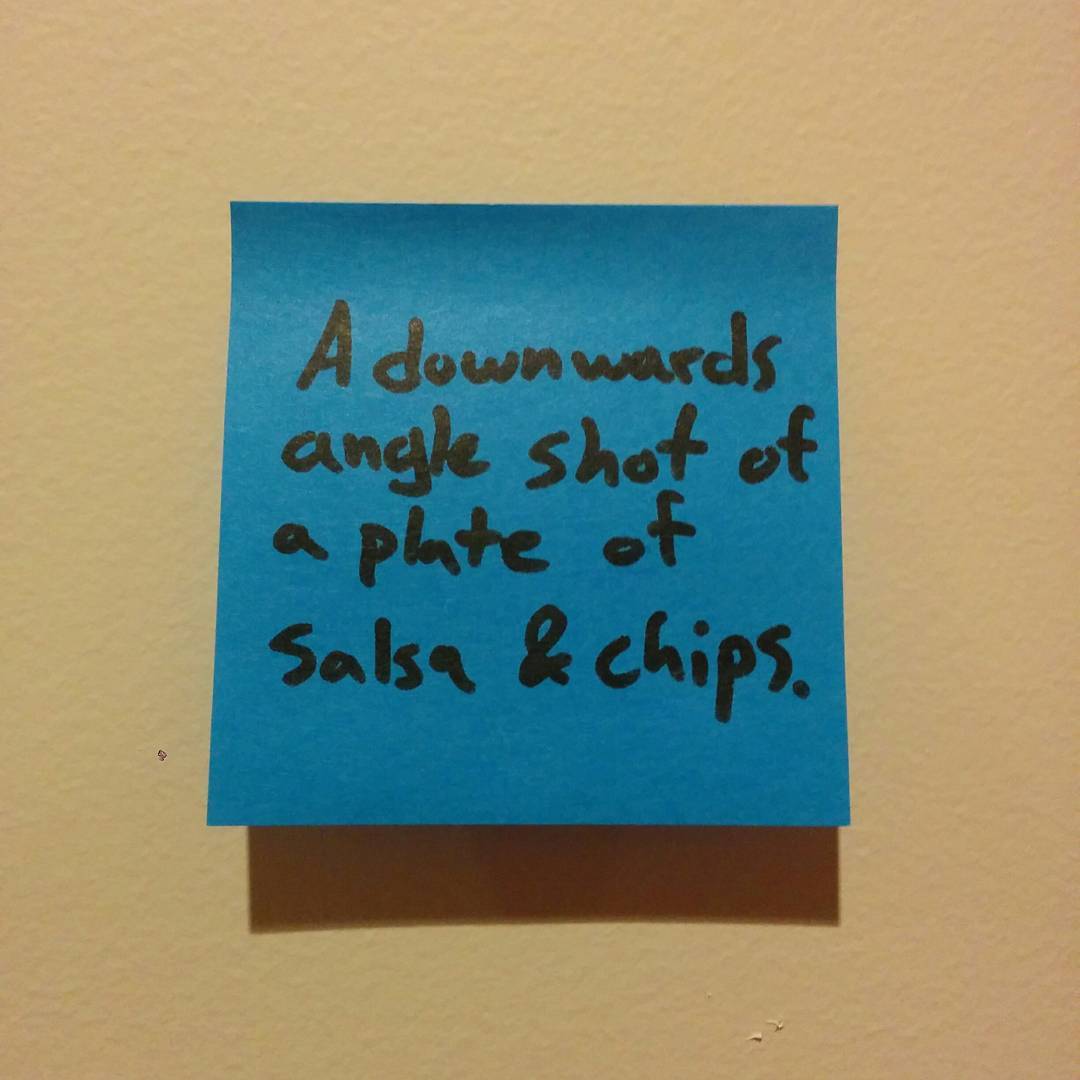 A downwards
angle shot of
a plate of
salsa & chips.